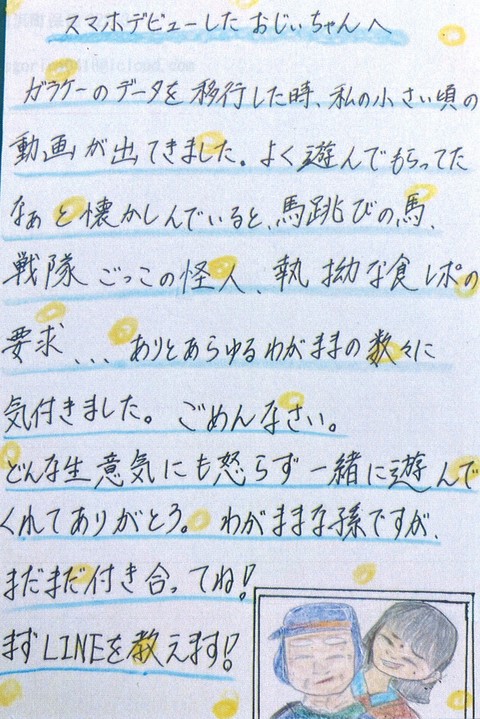 スマホデビューしたおじいちゃんへ
ガラケーのデータを移行した時、私の小さい頃の
動画が出てきました。よく遊んでもらってた
なぁと懐かしんでいると、馬跳びの馬、
戦隊ごっこの怪人、執拗な食レポの
要求...ありとあらゆるわがままの数々に
気付きました。ごめんなさい。
どんな生意気にも怒らず一緒に遊んで
くれてありがとう。わがままな孫ですが、
まだまだ付き合ってね!
まずLINEを教えます!